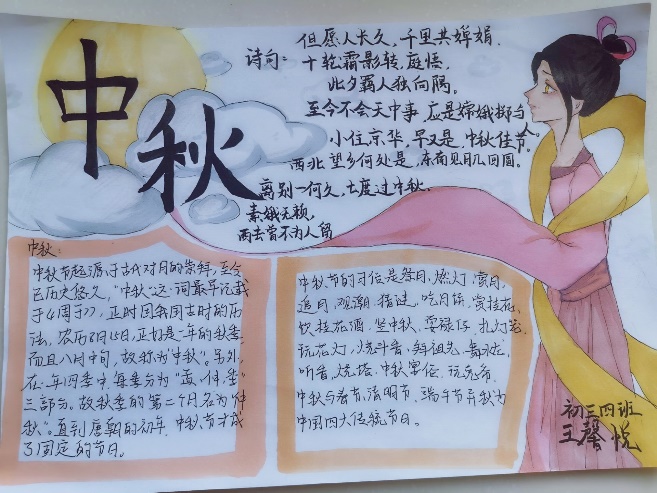 中秋
诗句:
但愿人长久,千里共婵娟.
十轮霜影转庭梧.
此夕羁人独向隅。
至今不会天中事 应是嫦娥掷与
小住京华,早又是,中秋佳节。
西北望乡何处是,东南见月几回圆。
离别一何久,七度过中秋.
素娥无赖,
西去曾不为人留
中秋:
中秋节起源于古代对月的崇拜,至今
已历史悠久,"中秋"这一词最早记载
于《周于》,正时因我国古时的历
法,农历8月15日,正好是一年的秋季
而且八月中旬,故称为"中秋"。另外,
在一年四季中,每季分为"孟、仲、季"
三部分。故秋季的第二个月名为"仲
秋"。直到唐朝的初年,中秋节才成
了固定的节日。
中秋节的习俗是祭月,燃灯,赏月,
追月,观潮,猜谜,吃月饼,赏桂花,
饮桂花酒,竖中秋,
玩花灯,烧斗香,拜祖先,舞火龙,
听香,烧塔,中秋宴俗,玩兔爷.
中秋与春节,清明节,端午节并称为
中国四大传统节日。
初三四班
王馨悦